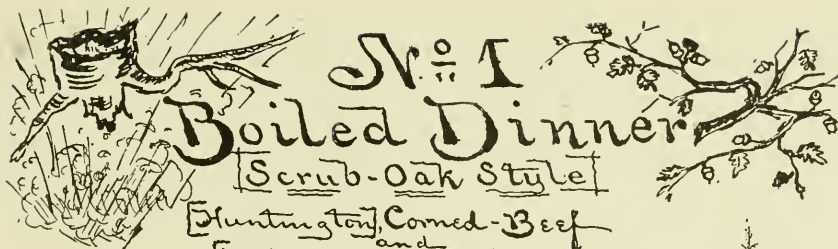 No. 1
Boiled Dinner
Scrub-Oak Style
[Huntington], Corned-Beef
and